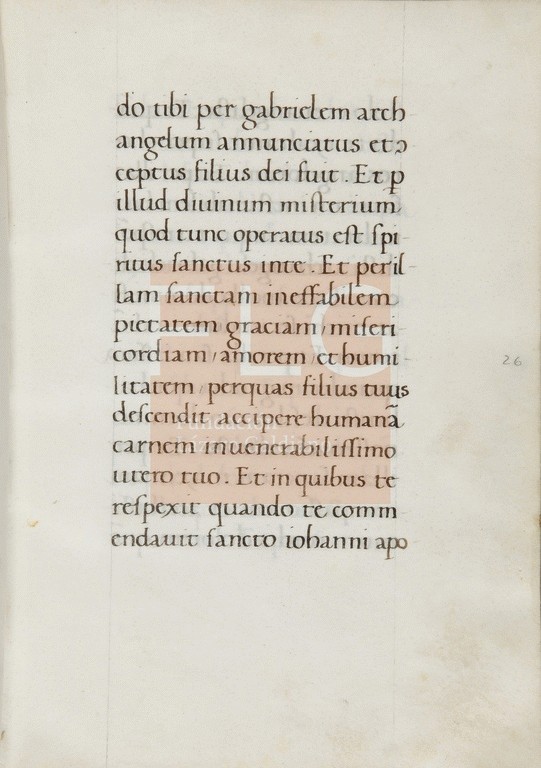 do tibi per gabrielem arch
angelum annunciatus et ↄ
ceptus filius dei fuit. Et ꝑ
illud diuinum misterium
quod tunc operatus est spi-
ritus sanctus inte. Et peril-
lam sanctam ineffabilem
pietatem graciam / miseri-
cordiam / amorem / et humi-
litatem / perquas filius tuus
descendit accipere humanã
carnem inuenerabilissimo
utero tuo. Et in quibus te
respexit quando te comm
endauit sancto iohanni apo
26
FLG
Fundación